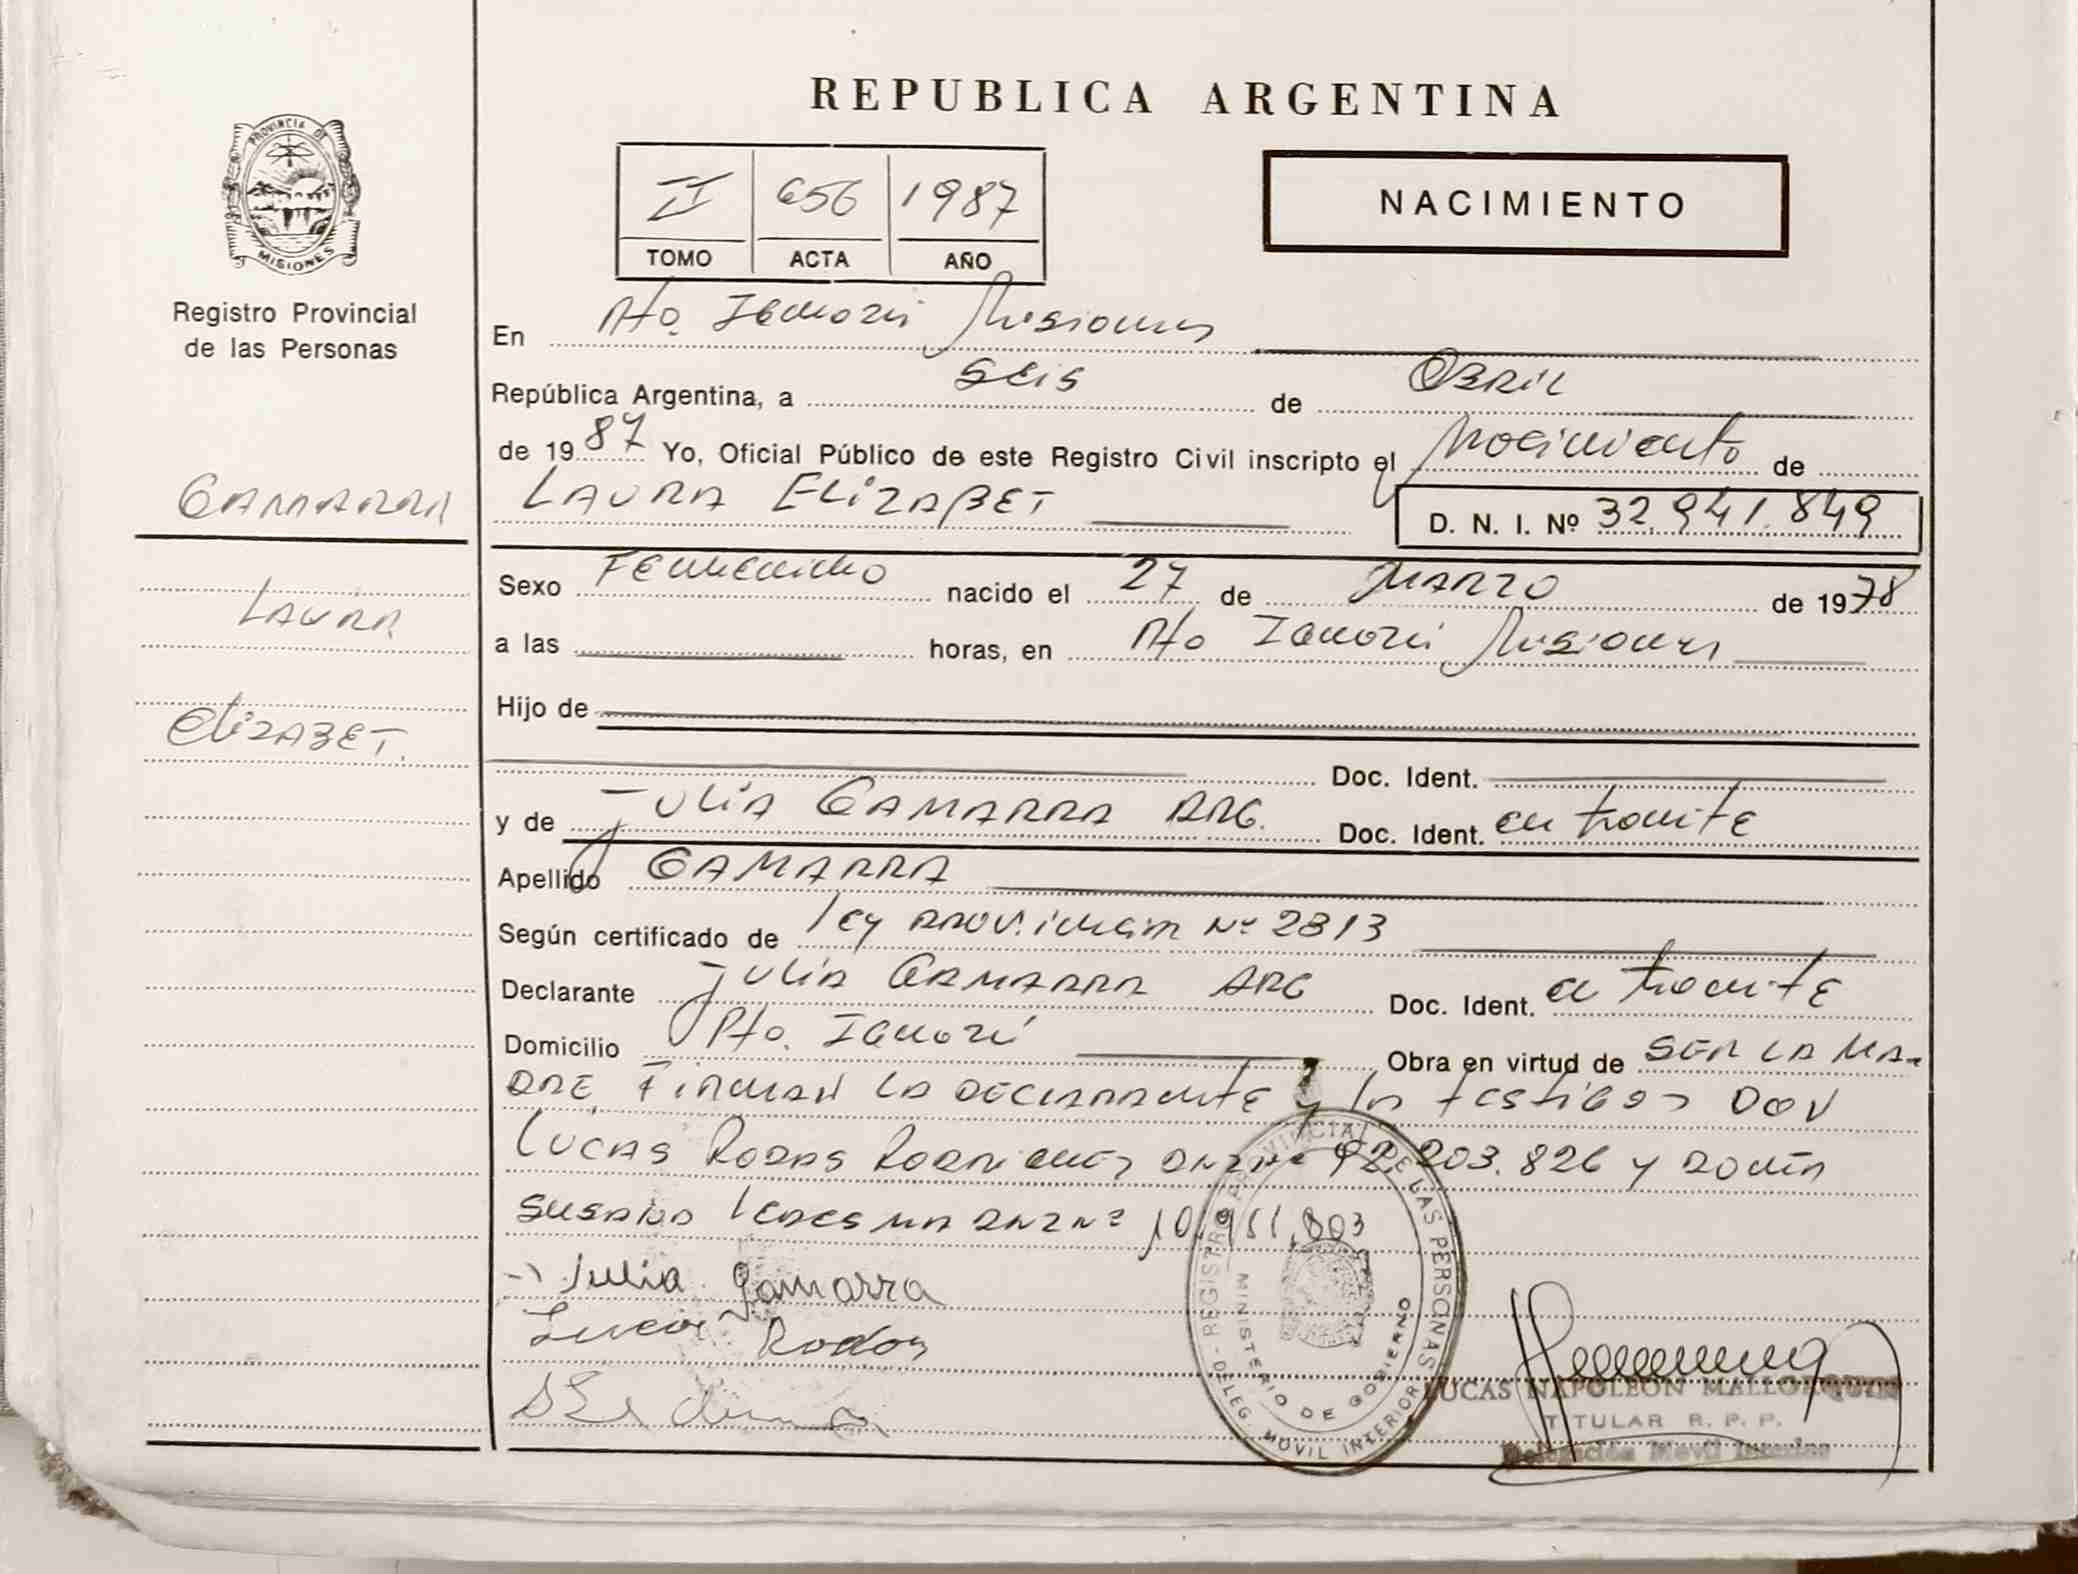 REPUBLICA ARGENTINA
PROVINCIA DE
MISIONES
Registro Provincial
de las Personas
II 656 1987
TOMO ACTA AÑO
NACIMIENTO
En Pto. Iguazú Misiones
República Argentina, a Seis de Abril
de 1987 Yo, Oficial Público de este Registro Civil inscripto el Nacimiento de
GAMARRA
LAURA ELIZABET
D. N. I. Nº 32.941.849
LAURA
ELIZABET.
Sexo Femenino nacido el 27 de MARZO de 1978
a las horas, en Pto Iguazú Misiones
Hijo de
Doc. Ident.
y de JULIA GAMARRA ARG. Doc. Ident. en tramite
Apellido GAMARRA
Según certificado de ley PROVINCIAL Nº 2813
Declarante JULIA GAMARRA ARG Doc. Ident. en tramite
Domicilio Pto. Iguazú Obra en virtud de SER LA MA-
DRE. FIRMAN LA DECLARANTE y los testigos DON
LUCAS RODAS RODRIGUEZ DNI Nº 92.203.826 y DOÑA
SUSANA LEDESMA DNI Nº 10.951.803
Julia Gamarra
Lucas Rodas
REGISTRO PROVINCIAL DE LAS PERSONAS
MINISTERIO DE GOBIERNO
DELEG. MOVIL INTERIOR
LUCAS NAPOLEON MALLORQUIN
TITULAR R. P. P.
Delegación Movil Interior